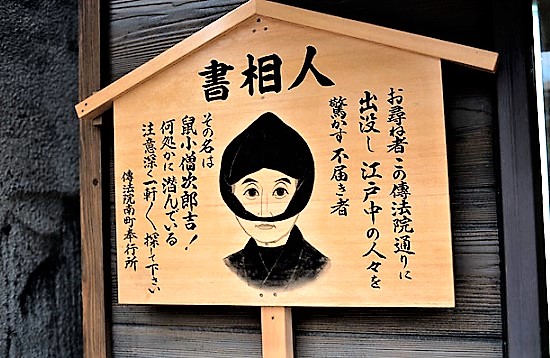 人相書
お尋ね者この傳法院通りに
出没し江戸中の人々を
驚かす不届き者
その名は
鼠小僧次郎吉！
何処かに潜んでいる
注意深く一軒〳〵探して下さい
傳法院南町奉行所